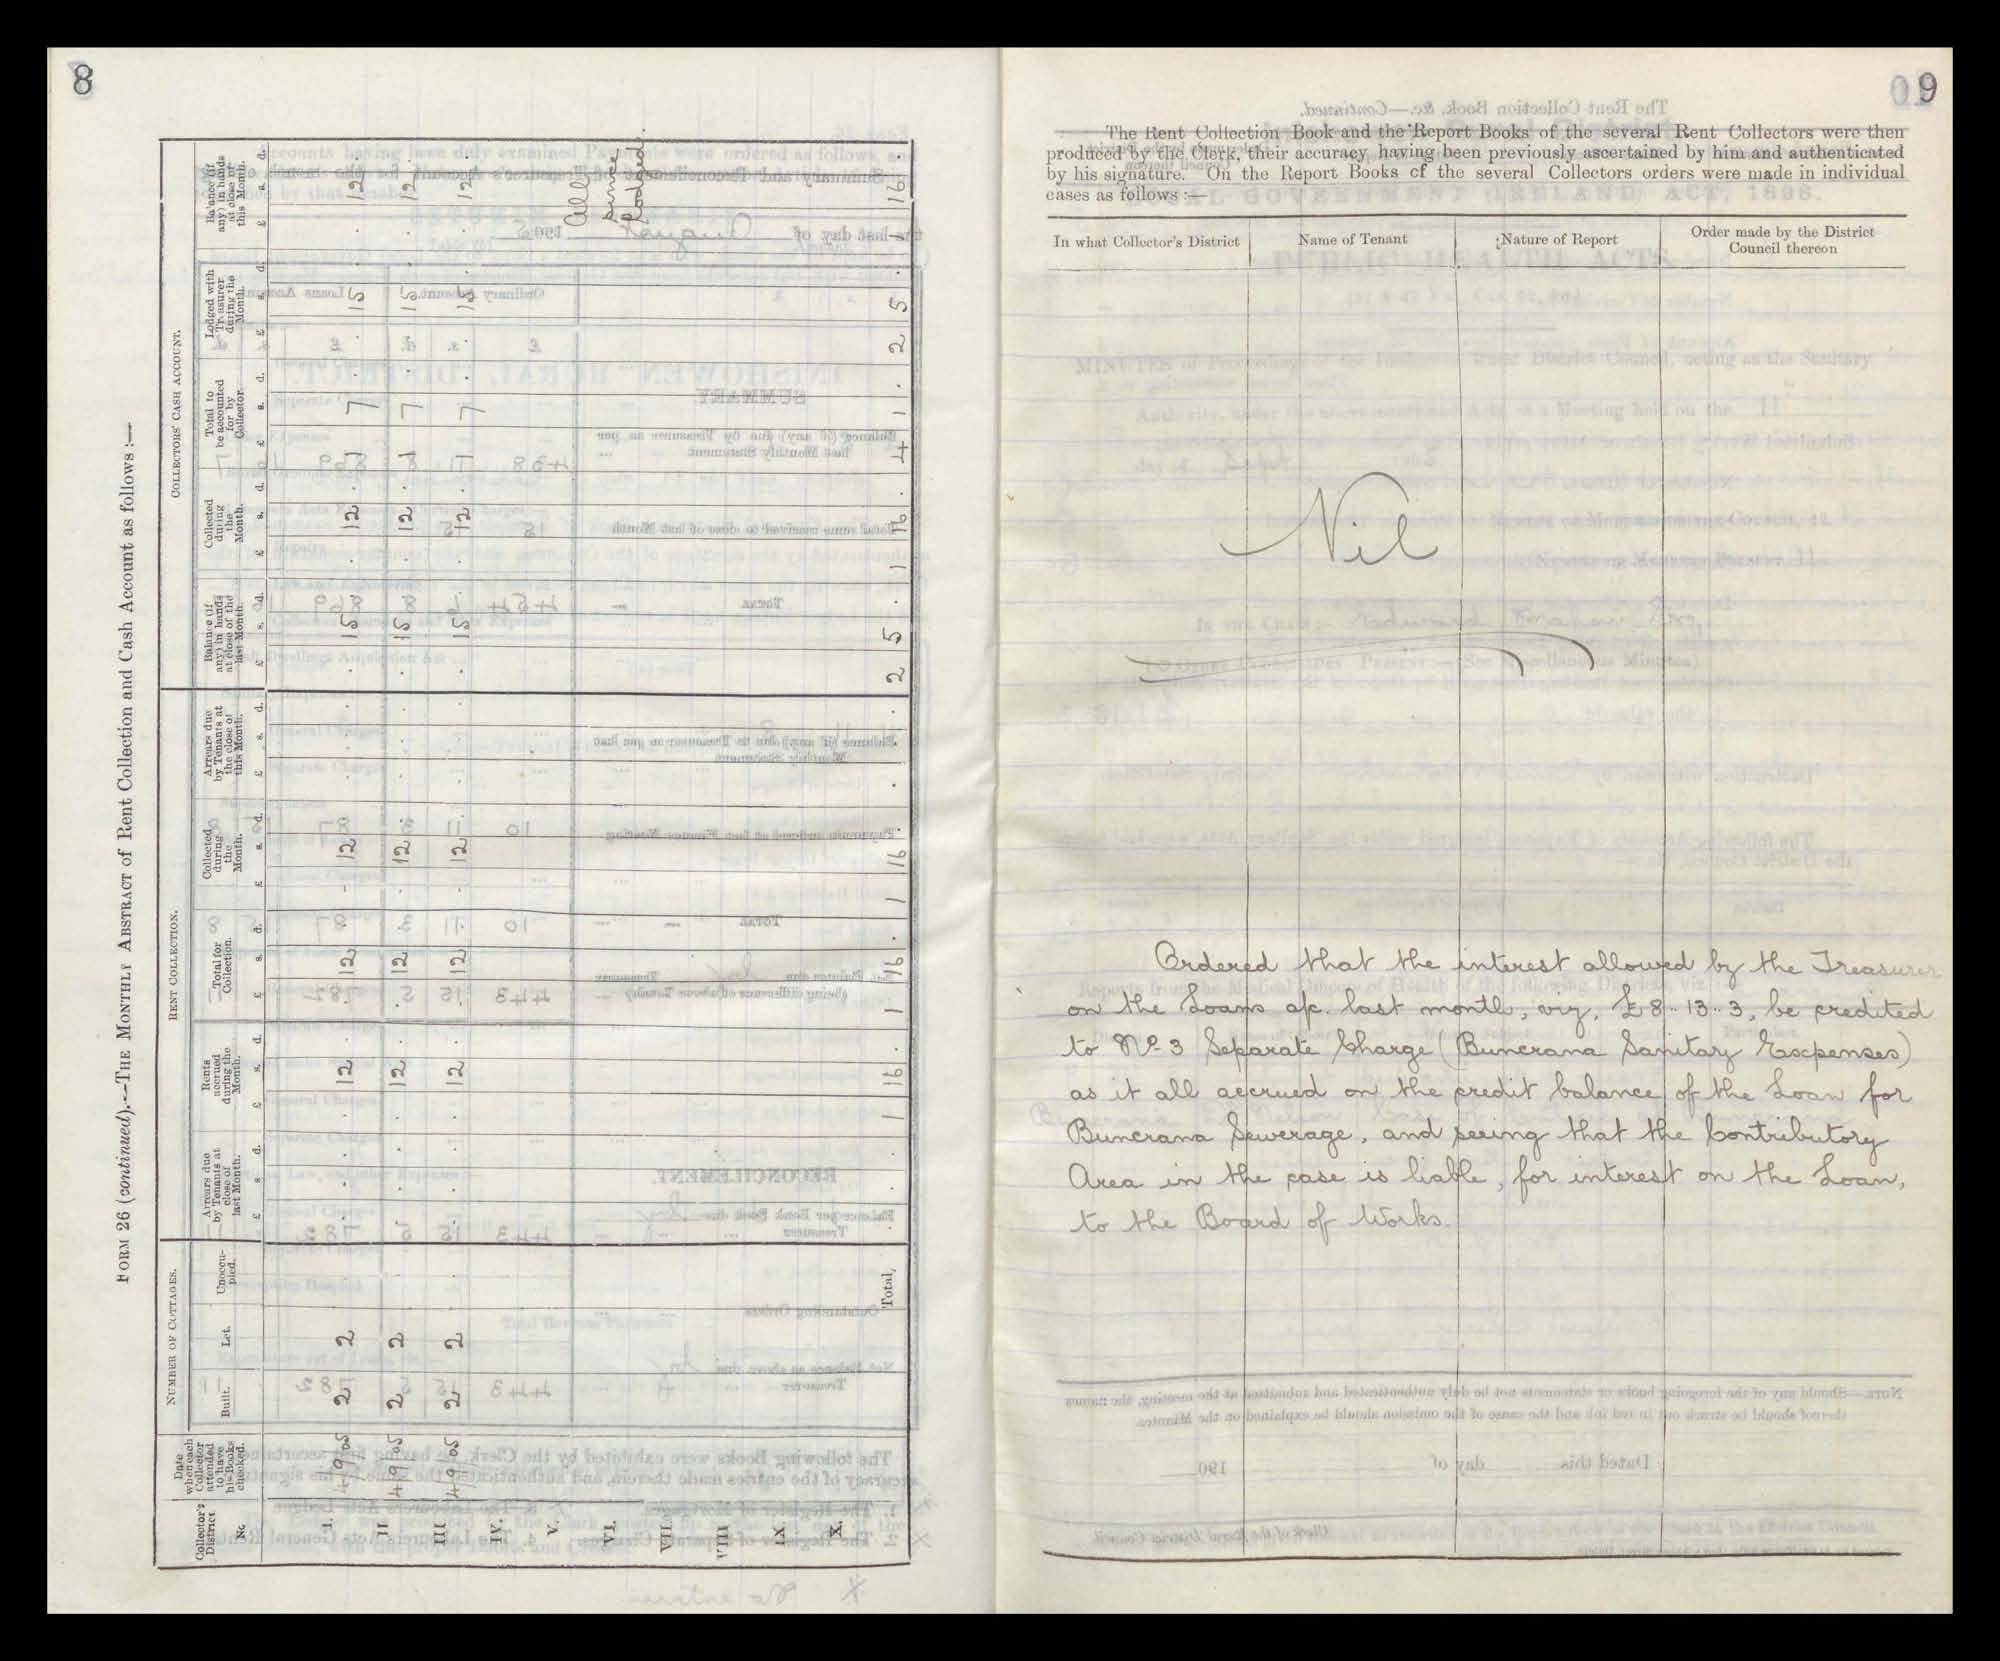 8
FORM 26 (continued).—THE MONTHLY ABSTRACT of Rent Collection and Cash Account as follows :—
Collector's District No.
Date when each Collector attended to have his Books checked.
NUMBER OF COTTAGES.
Built.
Let.
Unoccupied.
RENT COLLECTION.
Arrears due by Tenants at close of last Month.
Rents accrued during the Month.
Total for Collection.
Collected during the Month.
Arrears due by Tenants at the close of this Month.
COLLECTORS' CASH ACCOUNT.
Balance (if any) in hands at close of the last Month.
Collected during the Month.
Total to be accounted for by Collector.
Lodged with Treasurer during the Month.
Balance (if any) in hands at close of this Month.
£ s. d. £ s. d. £ s. d. £ s. d. £ s. d. £ s. d. £ s. d. £ s. d. £ s. d. £ s. d.
I. 4/9/05 2 2 . . . . 12 . . 12 . - 12 . . . . . 15 . . 12 . 1 7 . . 15 . . 12 .
II 4/9/05 2 2 . . . . 12 . . 12 . . 12 . . . . . 15 . . 12 . 1 7 . . 15 . . 12 .
III 4/9/05 2 2 . . . . 12 . . 12 . . 12 . . . . . 15 . . 12 . 1 7 . . 15 . . 12 .
IV.
V.
VI.
VII.
VIII
IX.
X.
All since lodged.
Total, . . 1 16 . 1 16 . 1 16 . . . 2 5 . 1 16 . 4 1 . 2 5 . 1 16 .
9
The Rent Collection Book and the Report Books of the several Rent Collectors were then
produced by the Clerk, their accuracy having been previously ascertained by him and authenticated
by his signature. On the Report Books of the several Collectors orders were made in individual
cases as follows :—
In what Collector's District
Name of Tenant
Nature of Report
Order made by the District Council thereon
Nil
Ordered that the interest allowed by the Treasurer
on the Loans a/c. last month, viz, £8..13..3, be credited
to No. 3 Separate Charge (Buncrana Sanitary Expenses)
as it all accrued on the credit balance of the Loan for
Buncrana Sewerage, and seeing that the Contributory
Area in the case is liable, for interest on the Loan,
to the Board of Works.